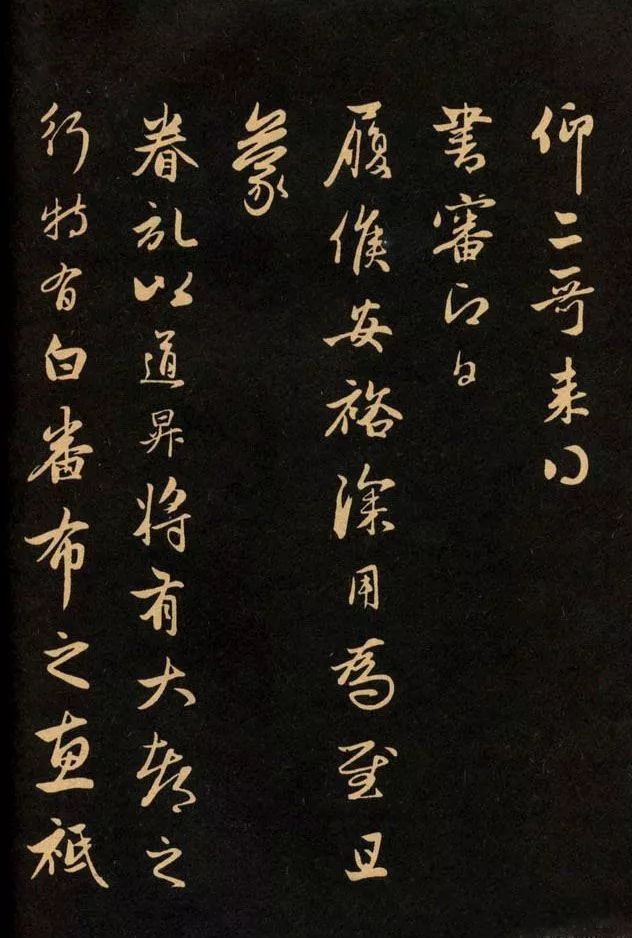 仰二哥来得
書審即日
履候安裕深用為慰且
蒙
眷記以道昇將有大都之
行特有白番布之惠祗